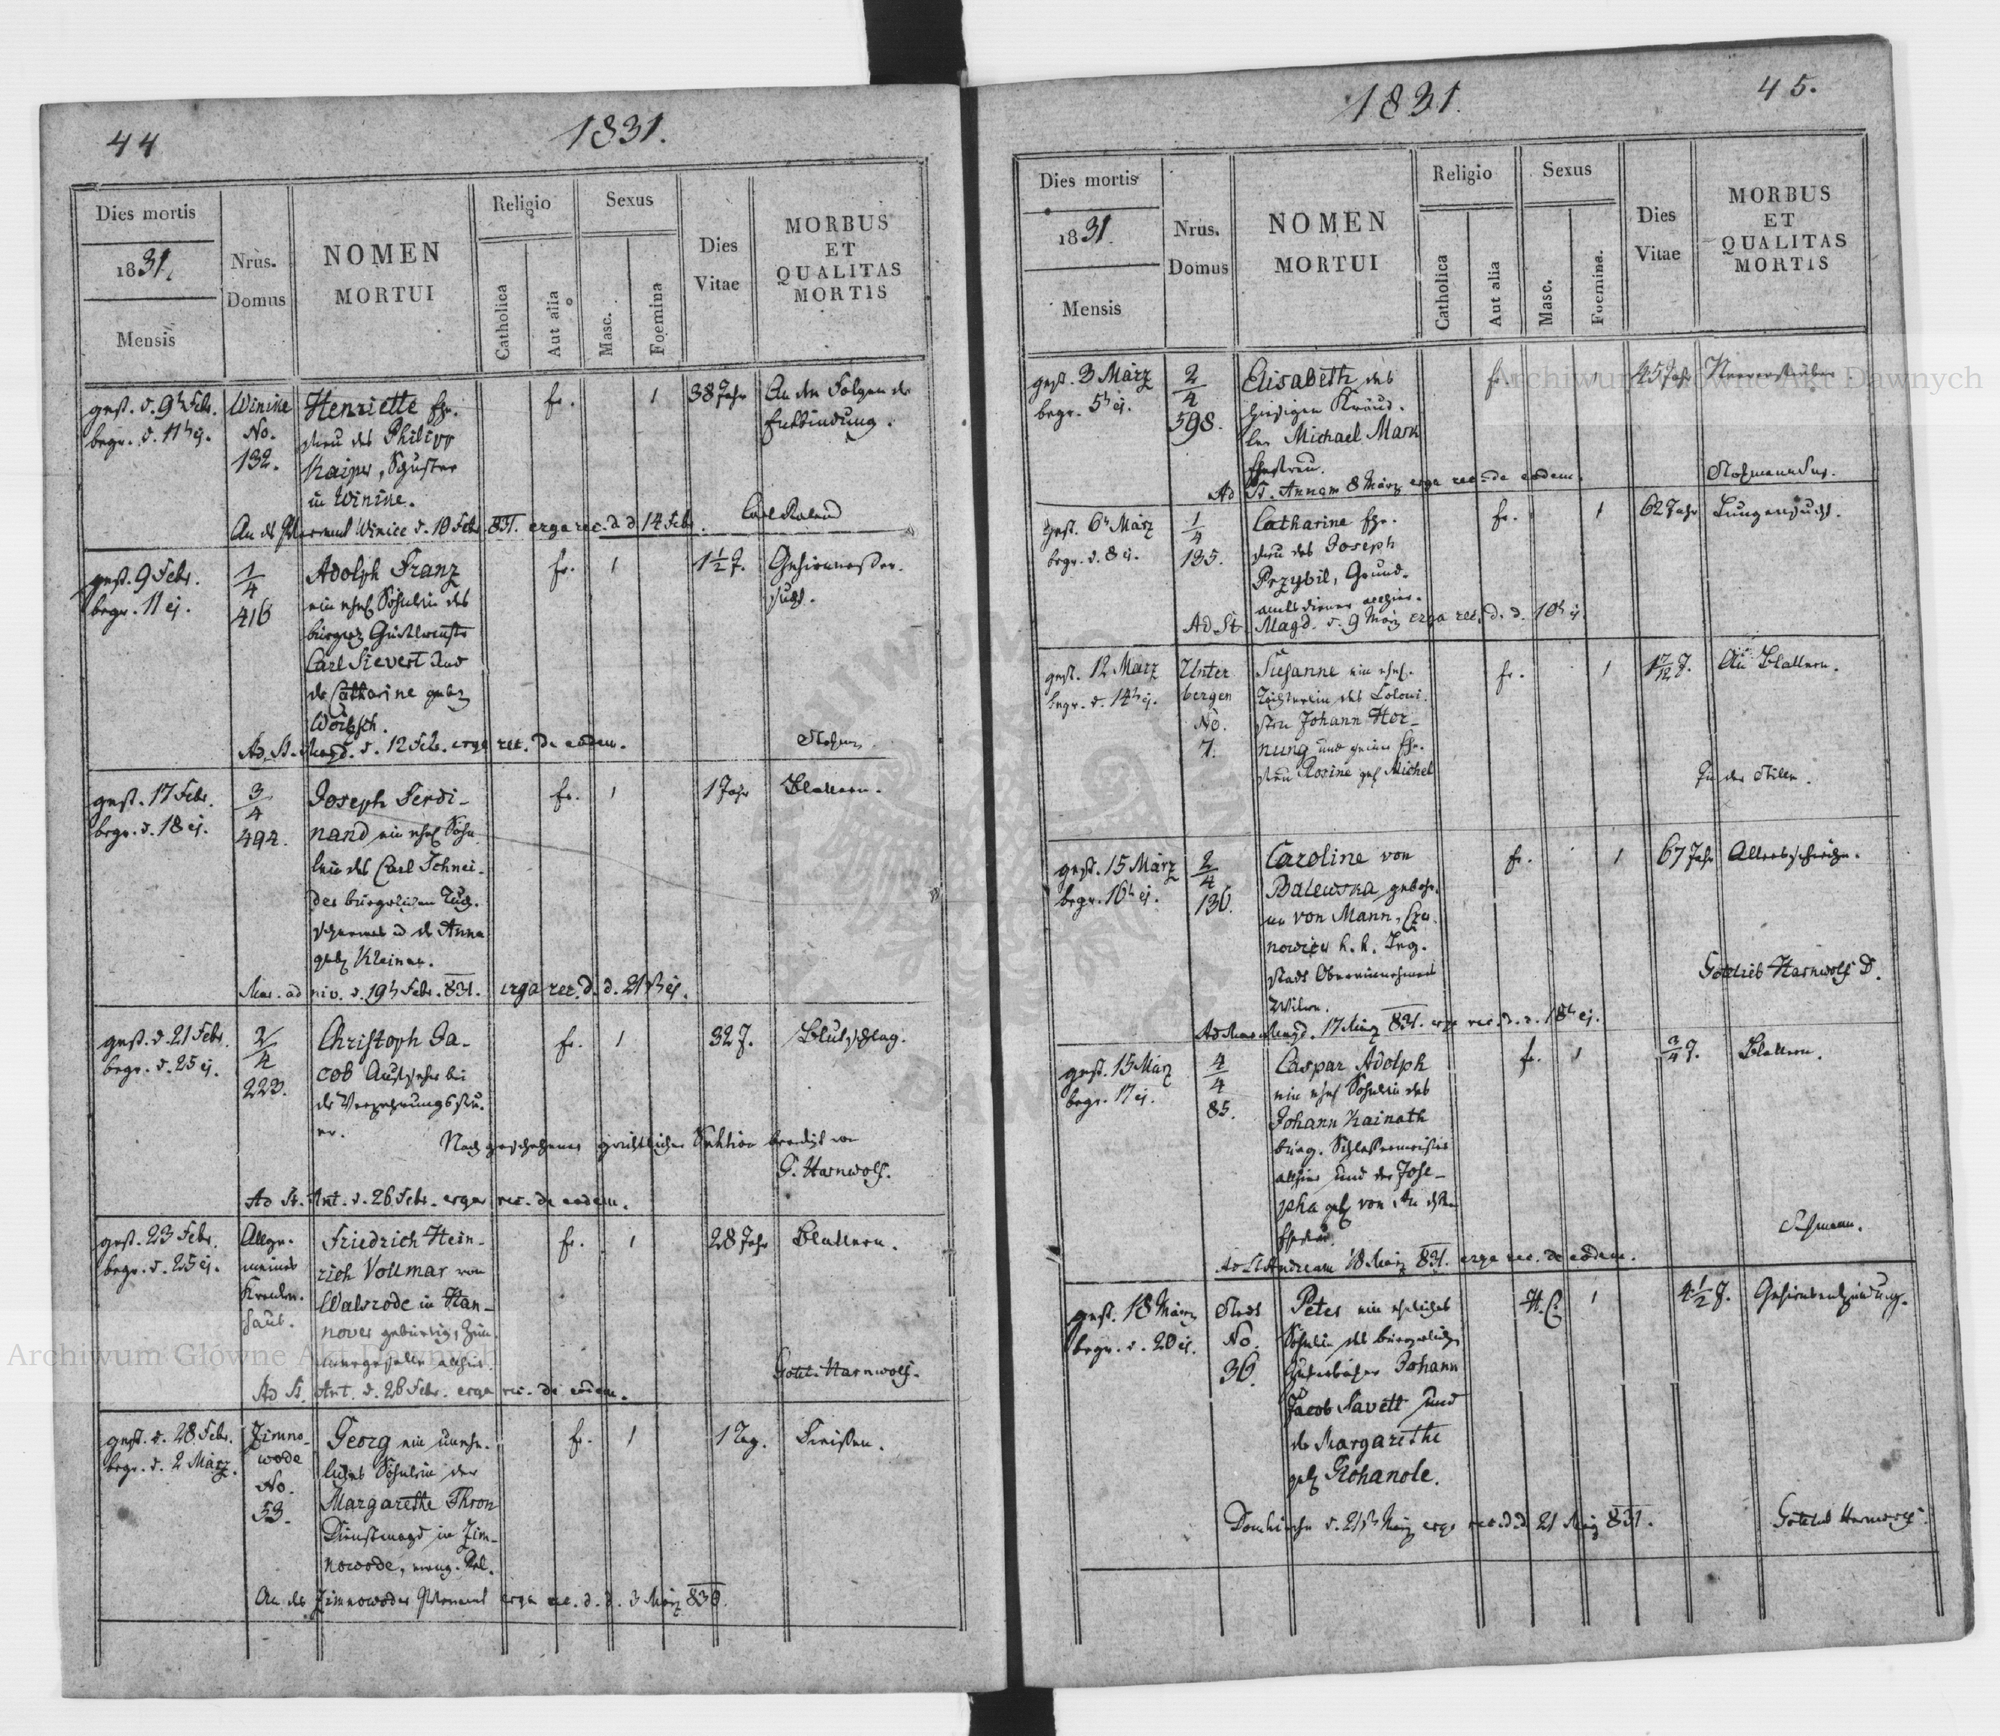 44
1831.
Dies mortis
1831.
Mensis
Nrus.
Domus
NOMEN
MORTUI
Religio
Catholica
Aut alia
Sexus
Masc.
Foemina
Dies
Vitae
MORBUS
ET
QUALITAS
MORTIS
gest. d. 9t Febr.
begr. d. 11t ej.
Winike
No.
132.
Henriette Ehe-
frau des Philipp
Kaiper, Schuster
in Winike.
1
38 Jahr
An den Folgen der
Entbindung.
Carl Roland
An das Pfarramt Winice d. 10 Febr. 831. erga rec. d. d. 14 Febr.
gest. 9 Febr.
begr. 11 ej.
1/4
416
Adolph Franz
ein ehel Söhnlein des
Carl Sievert und
der Catharine geb.
1
1 1/2 J.
Gehirnwasser-
sucht.
Ad St. Magd. d. 12 Feb. erga rec. de eodem.
gest. 17 Febr.
begr. d. 18 ej.
3/4
494.
Joseph Ferdi-
nand ein ehel Söhn
lein des Carl Schnei-
der bürgerlichen Tuch-
scherers u der Anna
geb. Kleiner.
1
1 Jahr
Blattern.
niv. d. 19t Febr. 831. erga rec. d. d. 21t ej.
gest. d. 21 Febr.
begr. d. 25 ej.
2/4
223.
Christoph Ja-
cob Aufseher bei
der Verzehrungssteu-
er.
1
32 J.
Blutschlag.
Nach geschehener gerichtlicher Sektion beerdigt von
G. Harnwolf.
Ad St. Ant. d. 26 Febr. erga rec. de eodem.
gest. 23 Febr.
begr. d. 25 ej.
Allge-
meines
Kranken-
haus.
Friedrich Hein-
rich Vollmar von
Walsrode in Han-
nover gebürtig, Zim-
mergeselle allhier.
1
28 Jahr
Blattern.
Gottl. Harnwolf.
Ad St. Ant. d. 26 Febr. erga rec. de eodem.
gest. d. 28. Febr.
begr. d. 2 März.
Zimno-
wode
No.
53.
Georg ein unehe-
liches Söhnlein der
Margarethe Thron
Dienstmagd in Zim-
nowode, evang. Rel.
1
1 Tag.
Fraisen.
An das Zimnowoder Pfarramt erga rec. d. d. 3 März 830.
45.
1831.
Dies mortis
1831.
Mensis
Nrus.
Domus
NOMEN
MORTUI
Religio
Catholica
Aut alia
Sexus
Masc.
Foemina.
Dies
Vitae
MORBUS
ET
QUALITAS
MORTIS
gest. 3 März
begr. 5t ej.
2/4
598.
Elisabeth des
hiesigen
Michael Mark
Ehefrau.
1
45 Jahr
Nervenfieber
Ad St. Annam 8 März erga rec. de eodem.
gest. 6t März
begr. d. 8 ej.
1/4
135.
Catharine Ehe-
frau des Joseph
Przybil, Grund-
amtsdiener allhier.
1
62 Jahr
Lungensucht.
Ad St. Magd. d. 9 März erga rec. d. d. 10t ej.
gest. 12 März
begr. d. 14t ej.
Unter
bergen
No.
7.
Susanne ein ehel.
Töchterlein des Coloni-
sten Johann Hor-
nung und seiner Ehe-
frau Rosine geb Michel
1
1 7/12 J.
An Blattern.
In der Stille.
gest. 15 März
begr. 16t ej.
2/4
136.
Caroline von
Balewska gebohr-
ne von Mann, Czer-
nowicer k. k. Leg-
stadt Obereinnehmers
Witwe.
1
67 Jahr
Altersschwäche.
Gottlieb Harnwolf D.
Magd. 17 März 831. erga rec. d. d. 18t ej.
gest. 15 März
begr. 17 ej.
4/4
85.
Caspar Adolph
ein ehel Söhnlein des
Johann Kainath
bürg. Schlossermeister
allhier und der Jose-
pha geb von
Ehefrau.
1
3/4 J.
Blattern.
Ad St Andream 18 März 831. erga rec. de eodem.
gest. 18 März
begr. d. 20 ej.
Stadt
No.
36.
Peter ein eheliches
Söhnlein des bürgerlichen
Johann
Jacob Savett und
der Margarethe
geb. Rohanole.
H. C.
1
4 1/2 J.
Gehirnentzündung.
Domkirche d. 21t März erga rec. d. d. 21 März 831.
Gottlieb Harnwolf
Archiwum Główne Akt Dawnych
Archiwum Główne Akt Dawnych